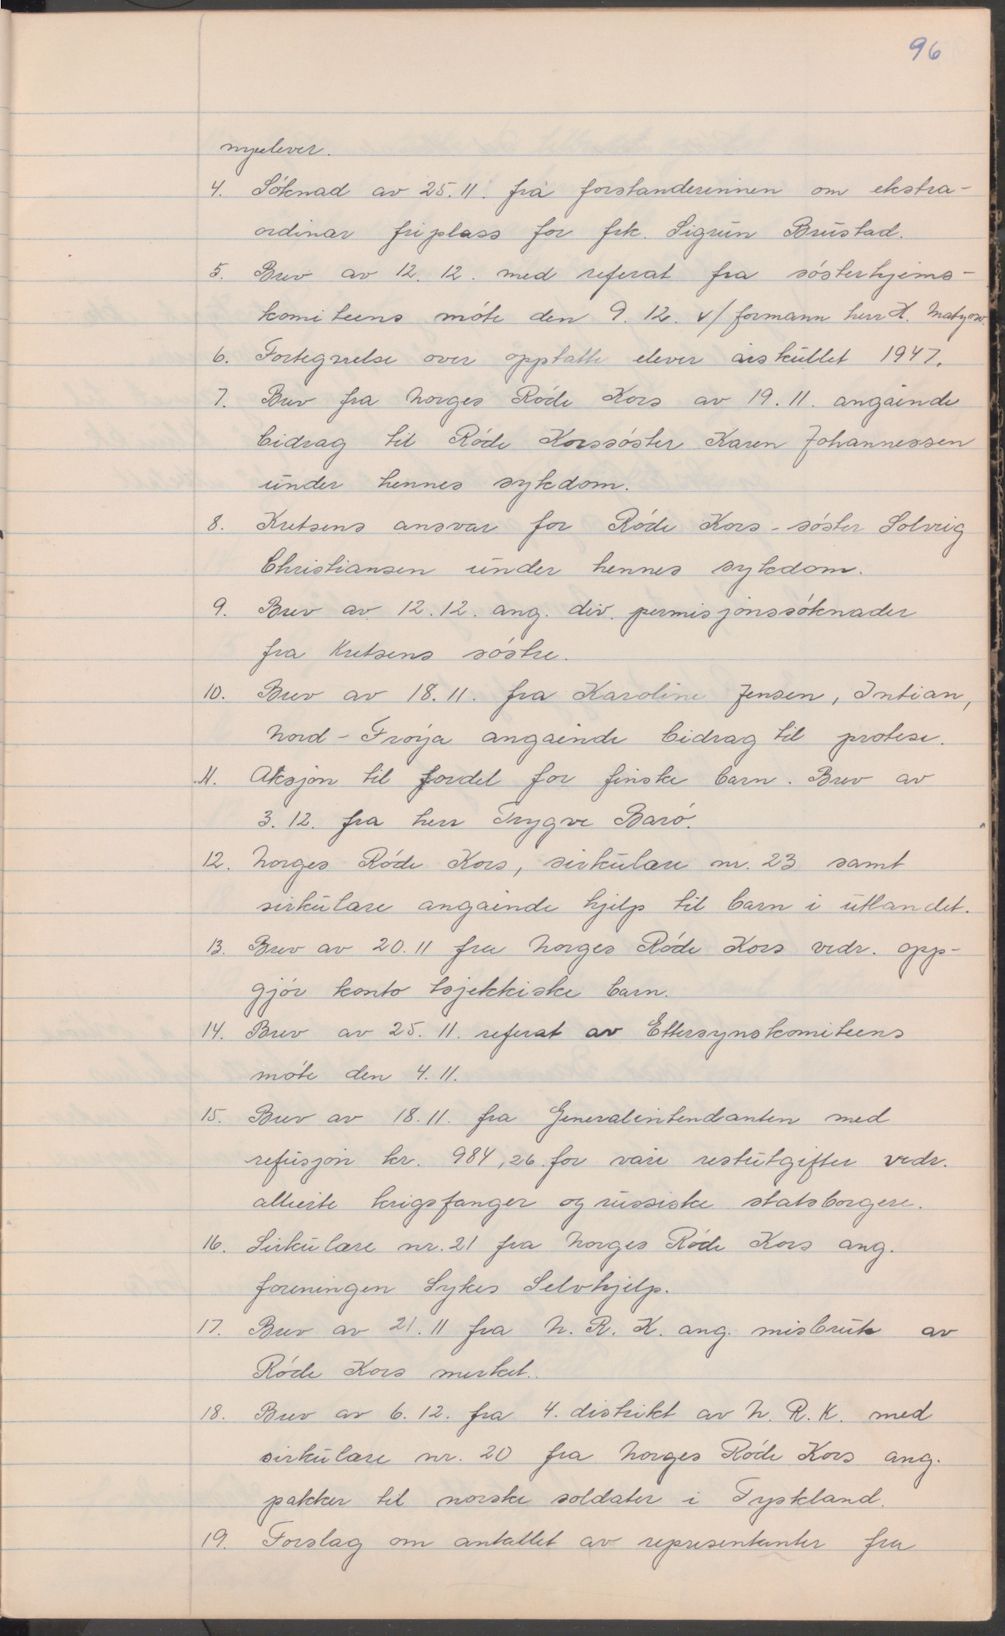 96
nyelever.
4. Söknad av 25.11. frå forstanderinnen om ekstra-
ordinær friplass for frk. Sigrun Brustad.
5. Brev av 12.12. med referat fra sösterhjems-
komiteens möte den 9.12. v/ formann herr H.
6. Fortegnelse over opptatte elever årskullet 1947.
7. Brev fra Norges Röde Kors av 19.11. angående
bidrag til Röde Korssöster Karen Johannessen
under hennes sykdom.
8. Kretsens ansvar for Röde Kors-söster Solveig
Christiansen under hennes sykdom.
9. Brev av 12.12. ang. div. permisjonssöknader
fra Kretsens söstre.
10. Brev av 18.11. fra Karoline Jensen, Intian,
Nord-Fröya angående bidrag til protese.
11. Aksjon til fordel for finske barn. Brev av
3.12. fra herr Trygve Barö.
12. Norges Röde Kors, sirkulære nr. 23 samt
sirkulære angående hjelp til barn i utlandet.
13. Brev av 20.11 fra Norges Röde Kors vedr. opp-
gjör konto tsjekkiske barn.
14. Brev av 25.11. referat av Ettersynskomiteens
möte den 4.11.
15. Brev av 18.11. fra Generalintendanten med
refusjon kr. 984,26 for våre restutgifter vedr.
allierte krigsfanger og russiske statsborgere.
16. Sirkulære nr. 21 fra Norges Röde Kors ang.
foreningen Sykes Selvhjelp.
17. Brev av 21.11 fra N.R.K. ang. misbruk av
Röde Kors merket.
18. Brev av 6.12. fra 4. distrikt av N.R.K. med
sirkulære nr. 20 fra Norges Röde Kors ang.
pakker til norske soldater i Tyskland.
19. Forslag om antallet av representanter fra